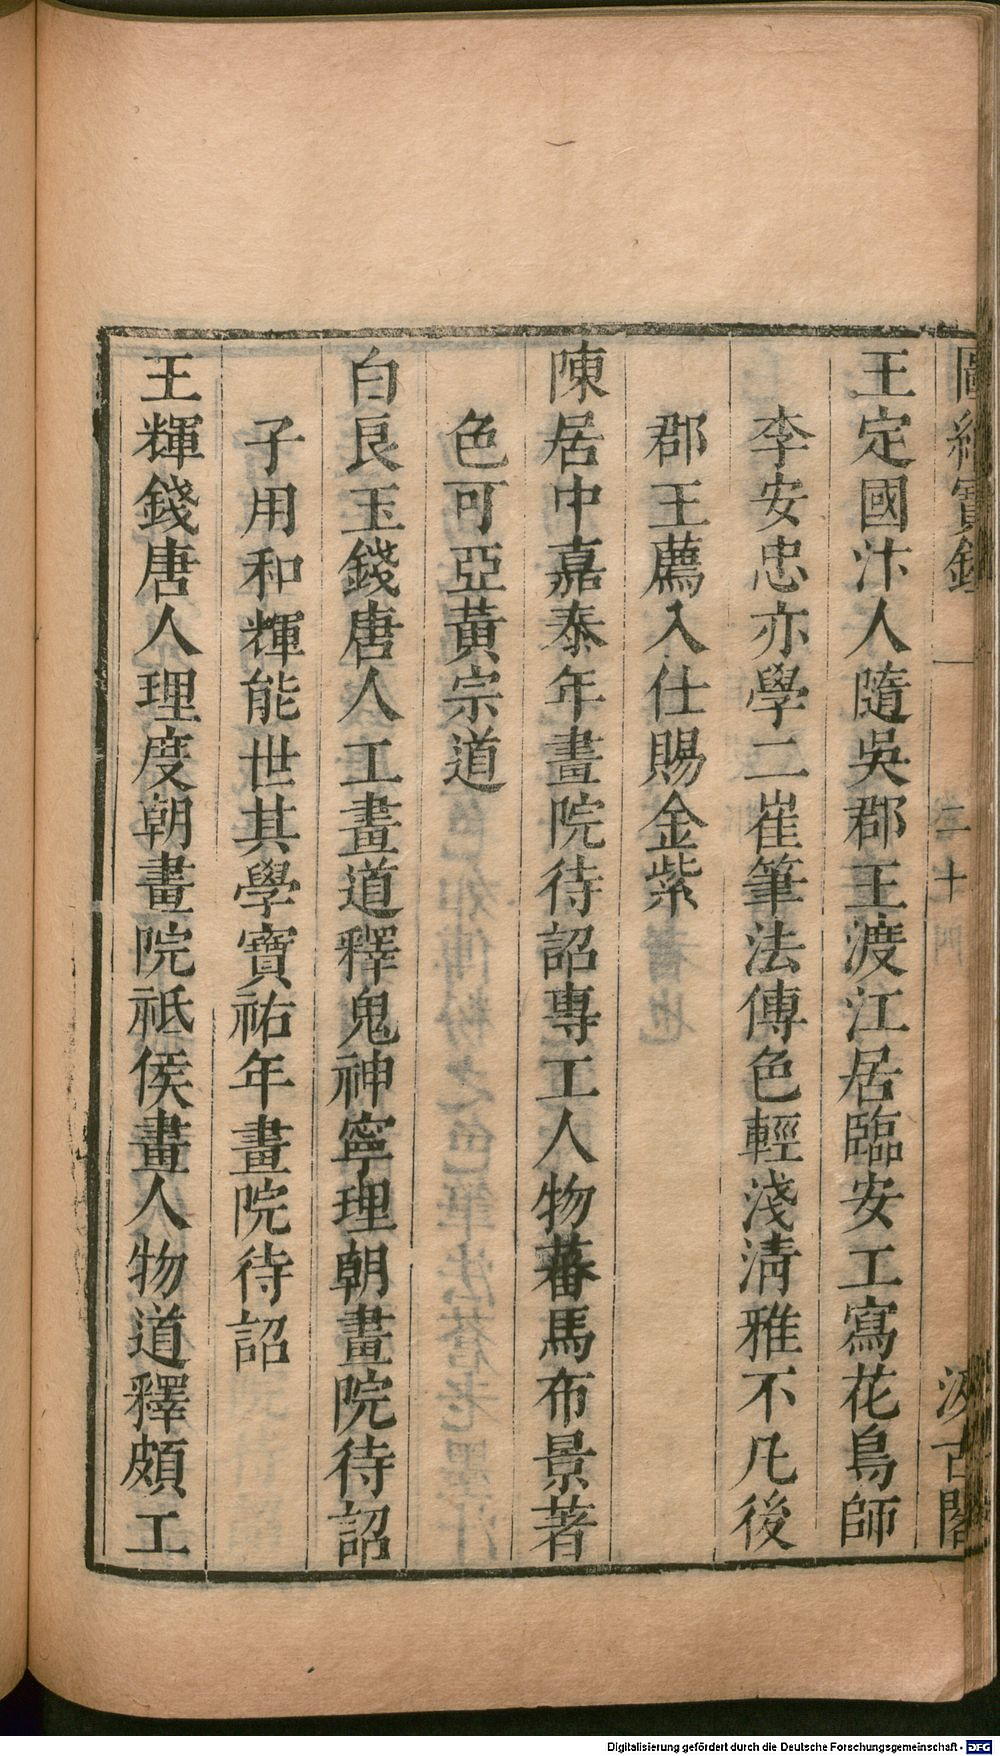 圖繪寶鑑
二十
汲古閣
王定國汴人隨吳郡王渡江居臨安工寫花鳥師
李安忠亦學二崔筆法傳色輕淺淸雅不凡後
郡王薦入仕賜金紫
陳居中嘉泰年畫院待詔專工人物蕃馬布景著
色可亞黃宗道
白良玉錢唐人工畫道釋鬼神寧理朝畫院待詔
子用和輝能世其學寶祐年畫院待詔
王輝錢唐人理度朝畫院祗侯畫人物道釋頗工
Digitalisierung gefördert durch die Deutsche Forschungsgemeinschaft - DFG